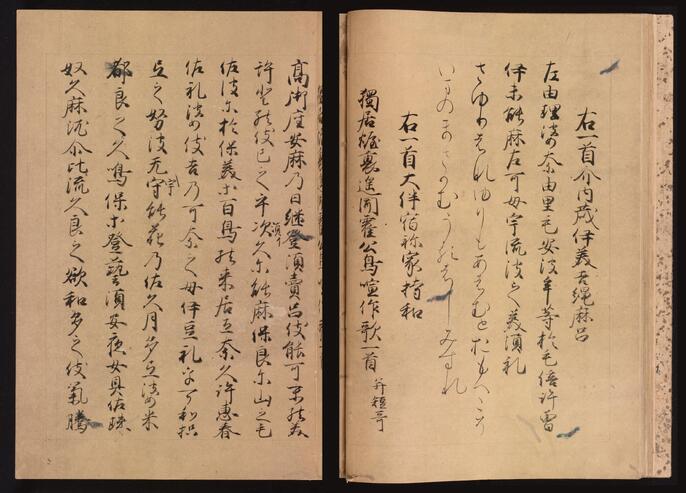 右一首介内蔵伊美吉縄麻呂
左由理波奈由里毛安波牟等於毛倍許曽
伊末能麻左可母宇流波之美須礼
さゆりはなゆりもあはむとおもへこそ
いまのまさかもうるはしみすれ
右一首大伴宿祢家持和
獨居幄裏遥聞霍公鳥喧作歌一首 并短哥
高御座安麻乃日継登須賣呂伎能可未能美
許登能伎己之乎次久尓能麻保良尓山之毛
佐波尓於保美等百鳥能来居弖奈久許恵春
佐礼波伎吉乃可奈之母伊豆礼乎可和枳
弖之努波无宇能花乃佐久月多弖波米
都良之久鳴保等登藝須安夜女具佐珠
奴久麻泥尓比流久良之欲和多之伎氣騰